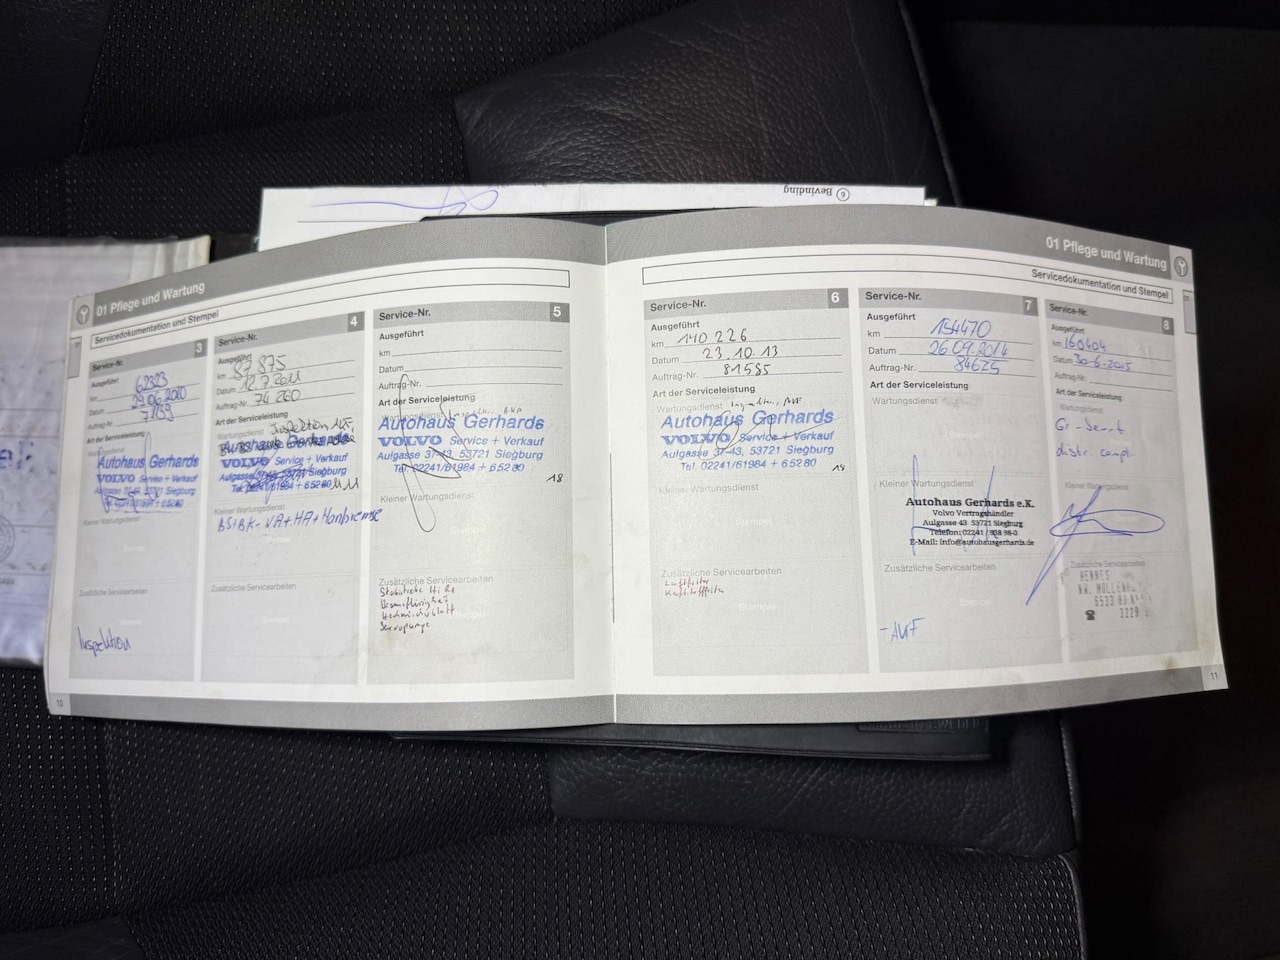 6 Bevinding
01 Pflege und Wartung
Servicedokumentation und Stempel
Service-Nr. 3
Ausgeführt
km 62323
Datum 29.06.2010
Auftrag-Nr.
Art der Serviceleistung
Wartungsdienst
Autohaus Gerhards
VOLVO Service + Verkauf
Aulgasse 37-43, 53721 Siegburg
Kleiner Wartungsdienst
Stempel
Zusätzliche Servicearbeiten
Inspektion
10
Service-Nr. 4
Ausgeführt
km 87 875
Datum 12.7.2011
Auftrag-Nr. 74 260
Art der Serviceleistung
Wartungsdienst Inspektion
Autohaus Gerhards
VOLVO Service + Verkauf
Aulgasse 37-43, 53721 Siegburg
Tel. 02241/61984 + 65280
Kleiner Wartungsdienst
BS+BK- VA+HA+Handbremse
Service-Nr. 5
Ausgeführt
km
Datum
Auftrag-Nr.
Art der Serviceleistung
Wartungsdienst
Autohaus Gerhards
VOLVO Service + Verkauf
Aulgasse 37-43, 53721 Siegburg
Tel. 02241/61984 + 65280
18
Kleiner Wartungsdienst
Stempel
Zusätzliche Servicearbeiten
Servopumpe
01 Pflege und Wartung
Servicedokumentation und Stempel
Service-Nr. 6
Ausgeführt
km 140 226
Datum 23.10.13
Auftrag-Nr. 81585
Art der Serviceleistung
Wartungsdienst
Autohaus Gerhards
VOLVO Service + Verkauf
Aulgasse 37-43, 53721 Siegburg
Tel. 02241/61984 + 65280
Kleiner Wartungsdienst
Stempel
Zusätzliche Servicearbeiten
Luftfilter
Kraftstofffilter
Stempel
Service-Nr. 7
Ausgeführt
km 154470
Datum 26.09.2014
Auftrag-Nr. 84625
Art der Serviceleistung
Wartungsdienst
Stempel
Kleiner Wartungsdienst
Autohaus Gerhards e.K.
Volvo Vertragshändler
Aulgasse 43 53721 Siegburg
Telefon: 02241 / 938 98-0
E-Mail: info@autohausgerhards.de
Zusätzliche Servicearbeiten
Stempel
Service-Nr. 8
Ausgeführt
km 160404
Datum 30-6-2015
Auftrag-Nr.
Art der Serviceleistung
Wartungsdienst
distr. compl.
Zusätzliche Servicearbeiten
HENNES
6533
3229
11